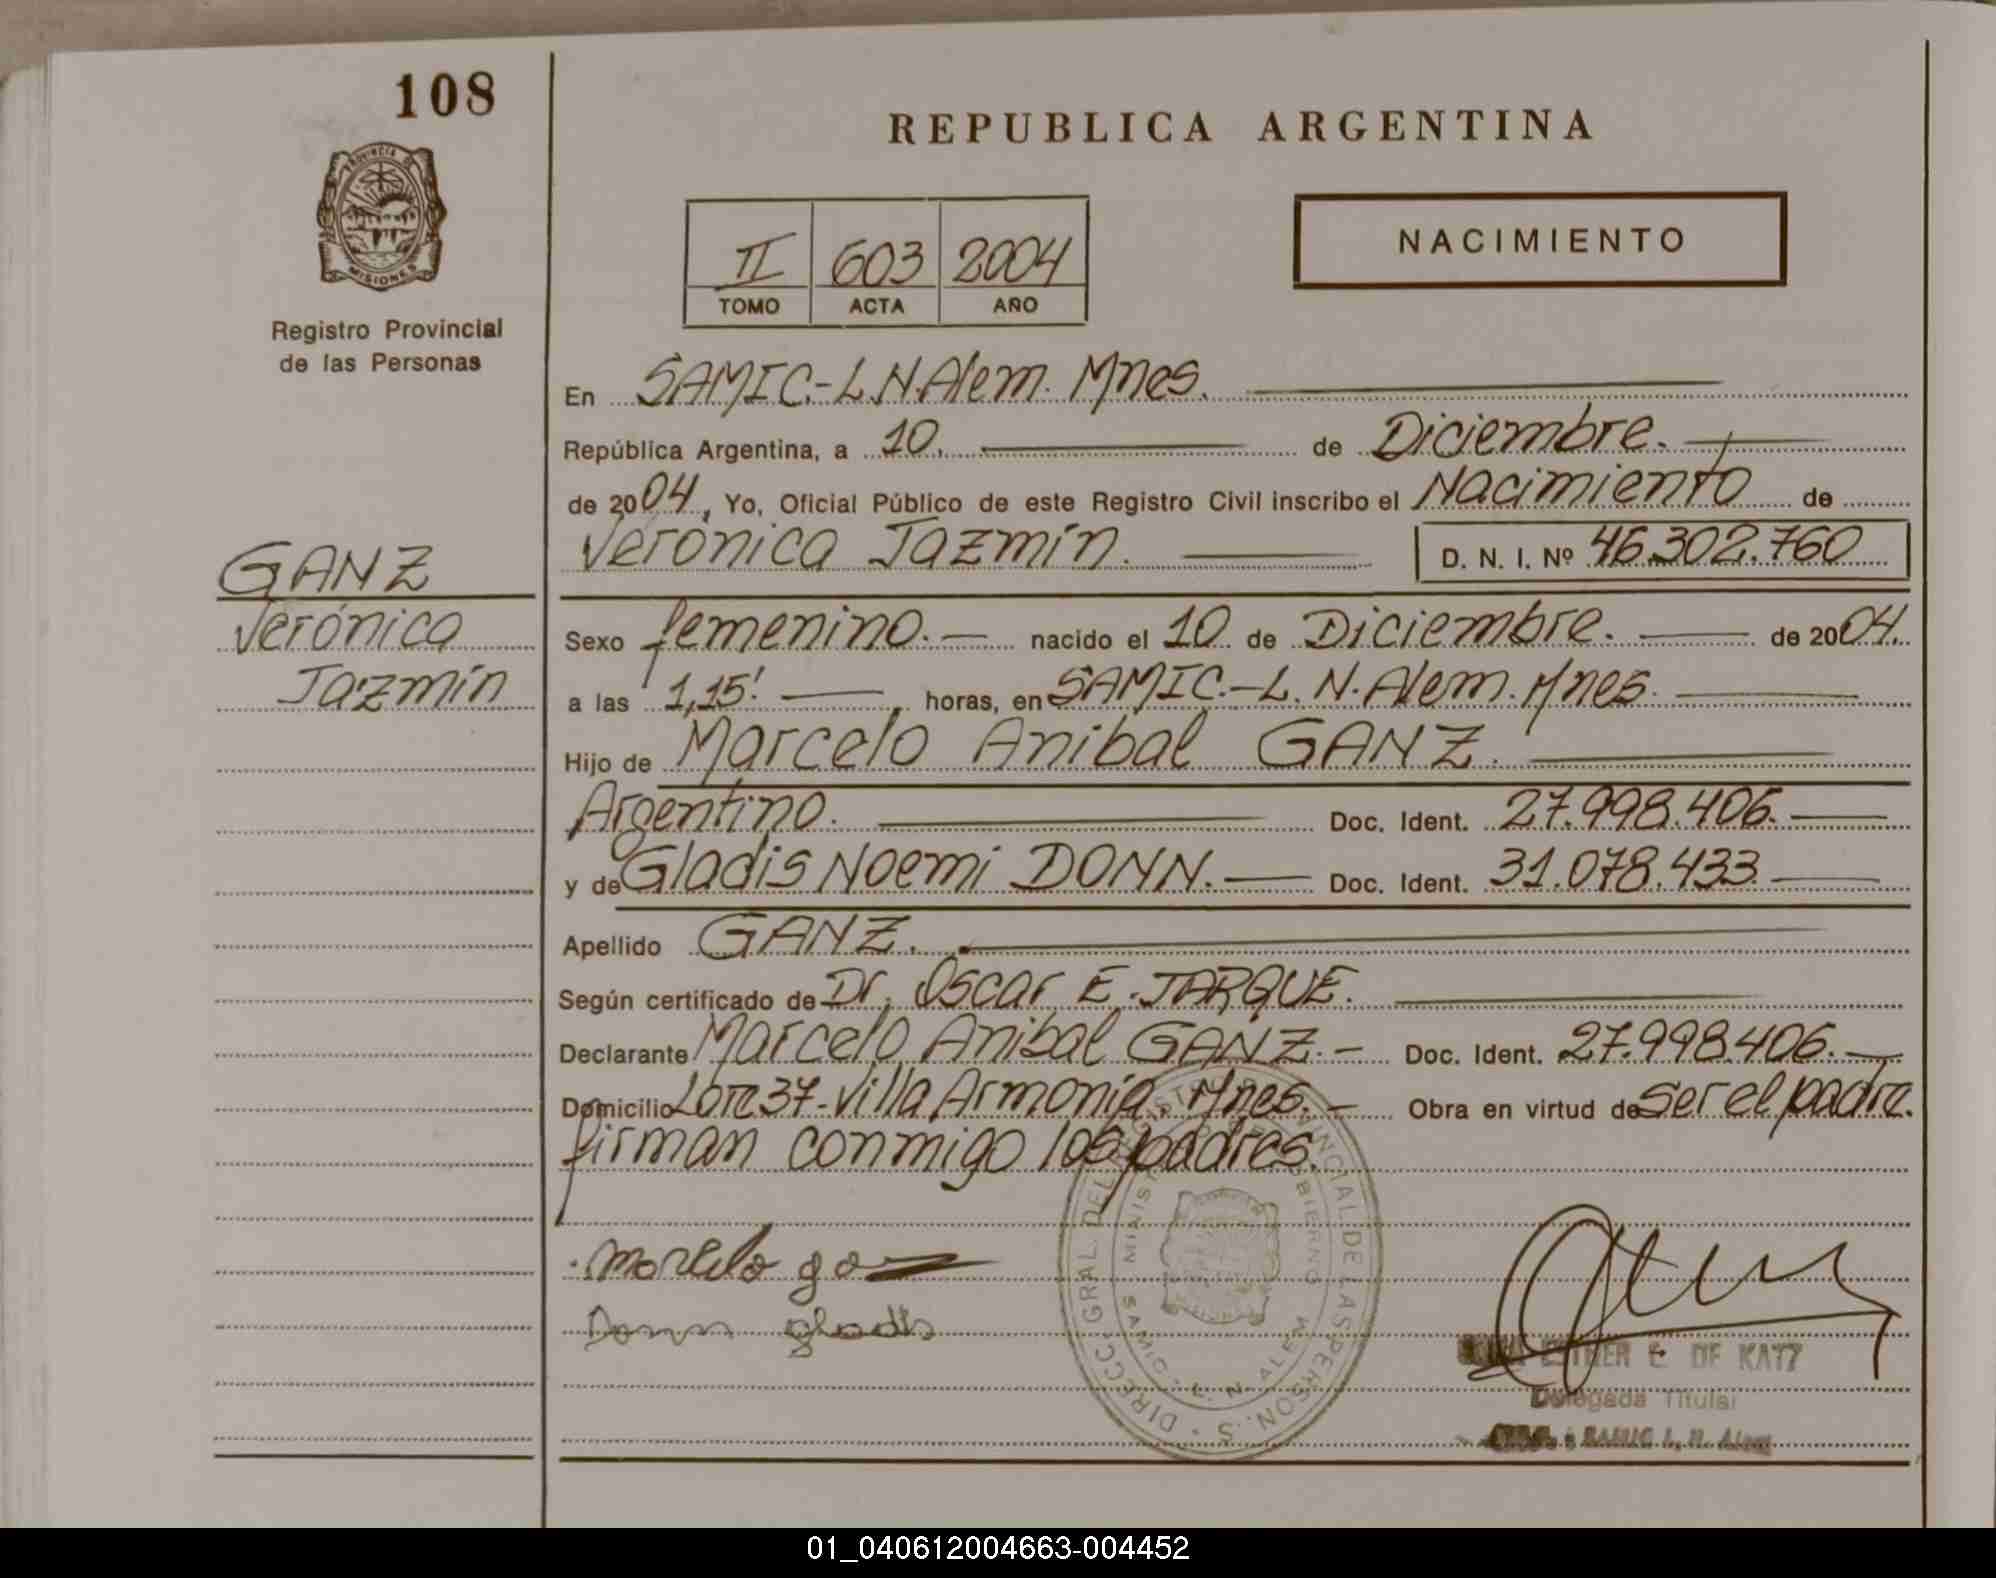 108
REPUBLICA ARGENTINA
PROVINCIA DE
MISIONES
Registro Provincial
de las Personas
NACIMIENTO
II 603 2004
TOMO ACTA AÑO
En SAMIC.-L.N.Alem. Mnes.
República Argentina, a 10. de Diciembre.
de 2004, Yo, Oficial Público de este Registro Civil inscribo el Nacimiento de
Verónica Jazmín. D. N. I. Nº 46.302.760
GANZ
Verónica
Jazmín
Sexo femenino.- nacido el 10 de Diciembre. de 2004.
a las 1,15' horas, en SAMIC.-L. N. Alem. Mnes.
Hijo de Marcelo Anibal GANZ.
Argentino. Doc. Ident. 27.998.406.
y de Gladis Noemi DONN. Doc. Ident. 31.078.433
Apellido GANZ.
Según certificado de Dr. Oscar E. JARQUE.
Declarante Marcelo Anibal GANZ.- Doc. Ident. 27.998.406.
Domicilio Lote 37-Villa Armonía, Mnes.- Obra en virtud de ser el padre.
firman conmigo los padres.
Marcelo
Donn gladis
DIRECC. GRAL. DEL REGISTRO PROVINCIAL DE LAS PERSONAS
MINISTERIO DE GOBIERNO
SAMIC - L. N. ALEM
ESTHER E. DE KATZ
Delegada Titular
SAMIC L. N. Alem
01_040612004663-004452